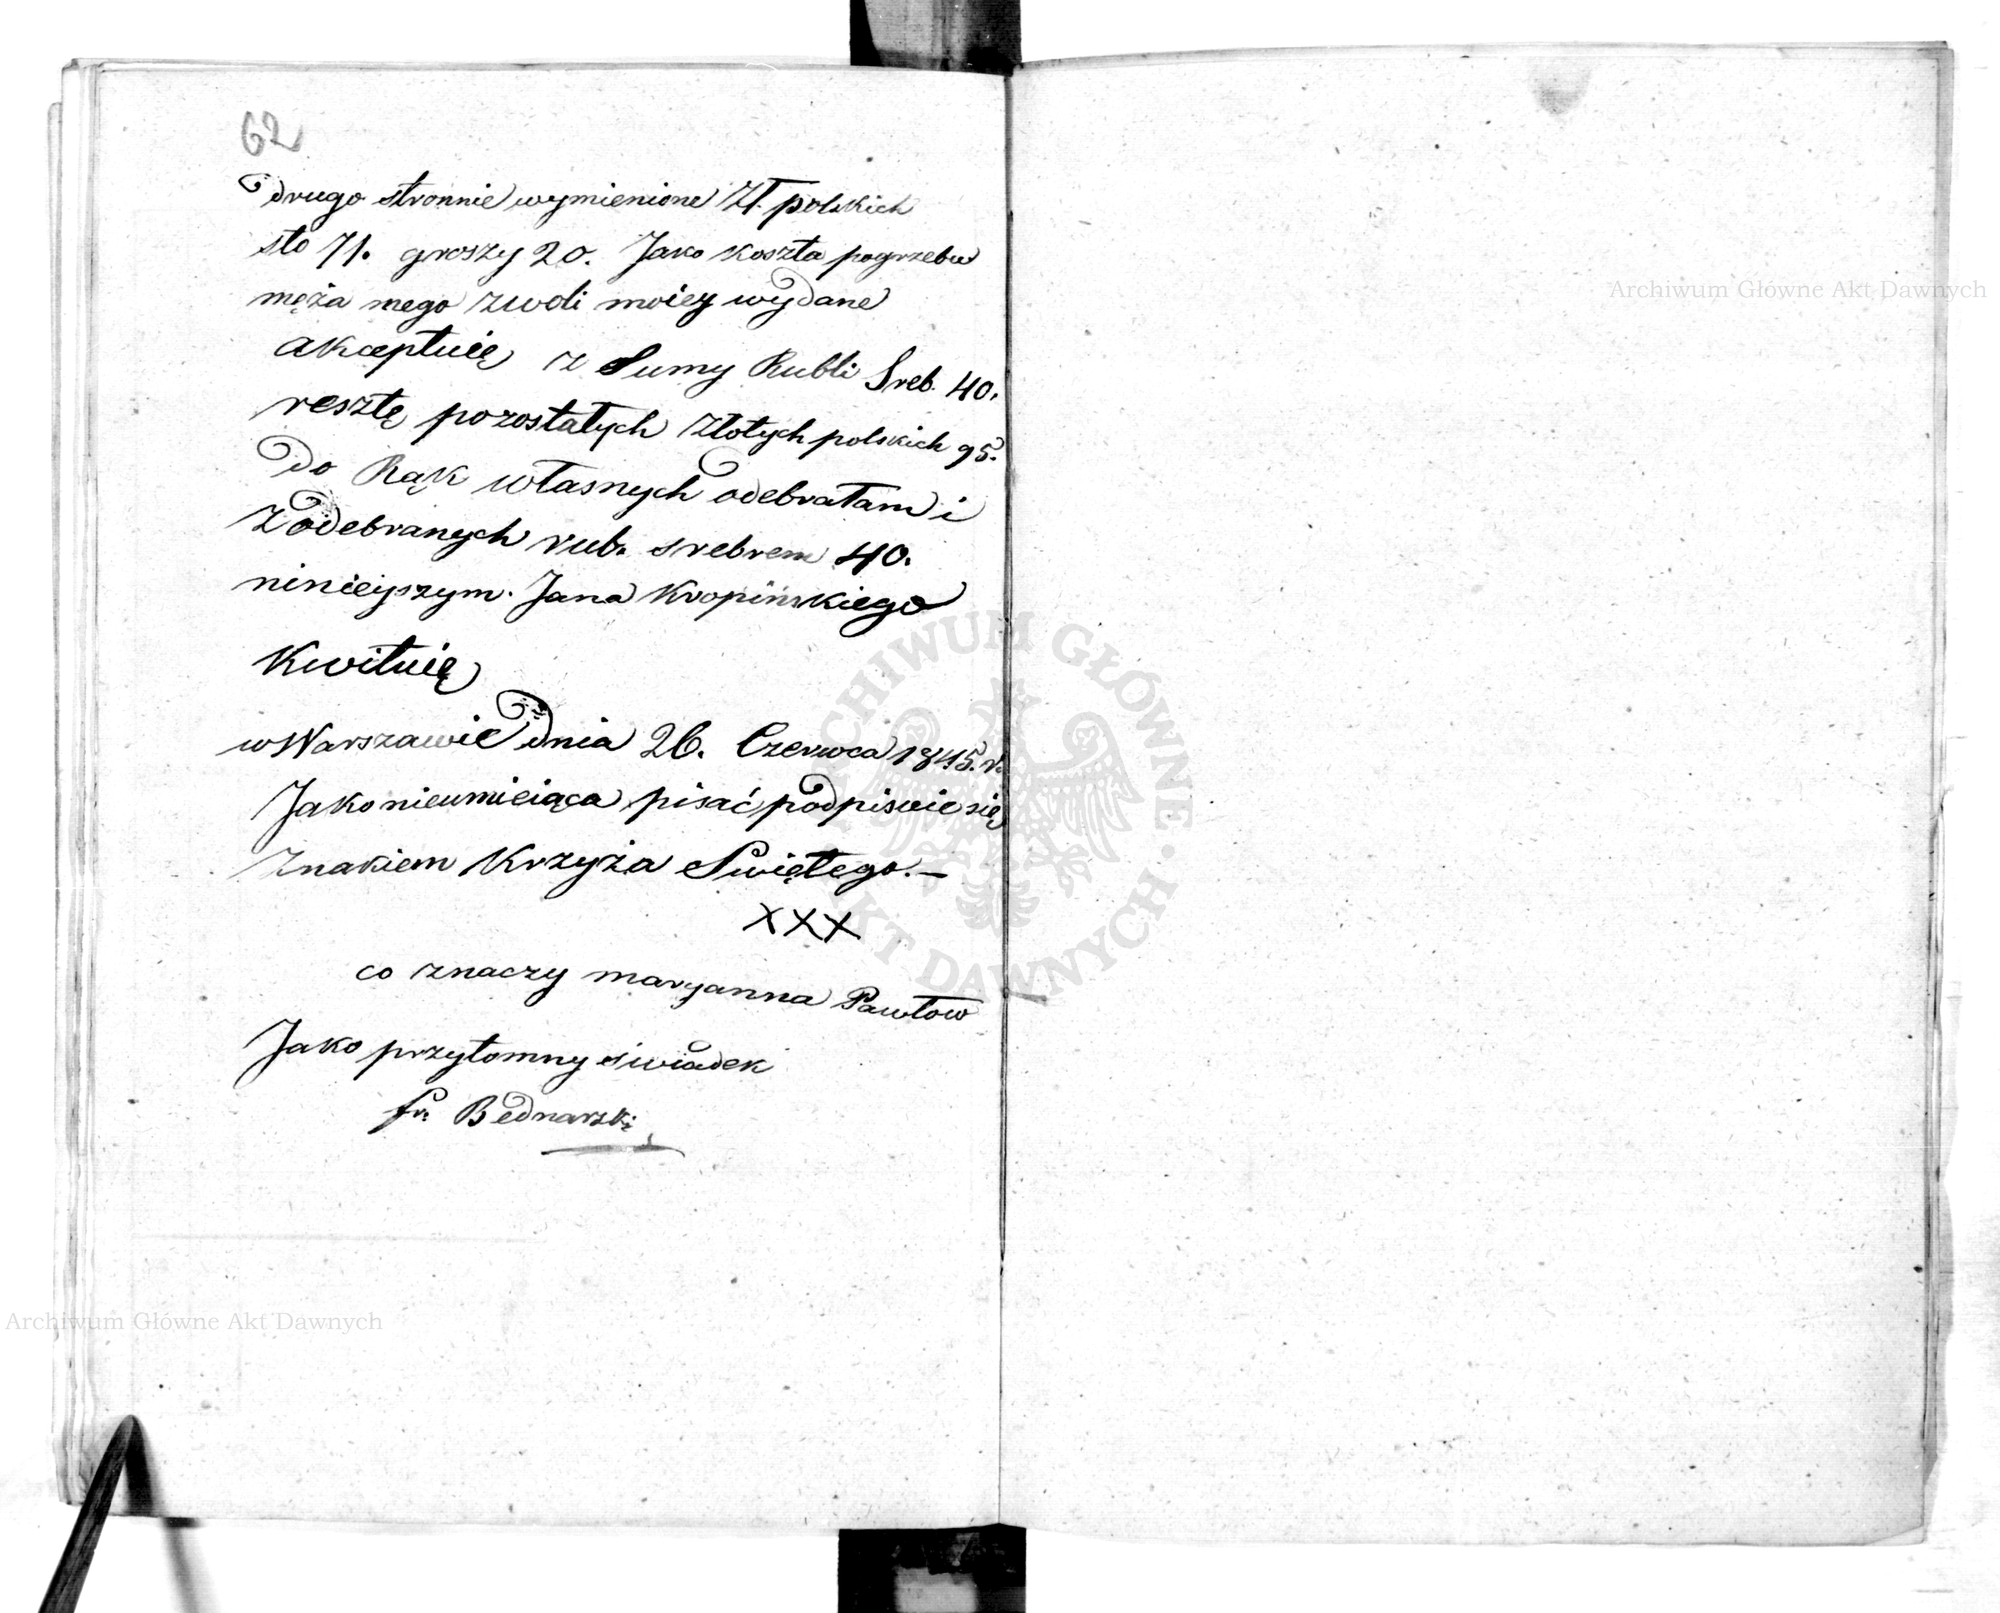 62
drugo stronnie wymienione Zł. polskich
sto 71. groszy 20. Jako koszta pogrzebu
męża mego zwoli moiey wydane
akceptuię z Sumy Rubli Sreb. 40.
resztę pozostałych złotych polskich 95.
do Rąk własnych odebrałam i
z odebranych rub. srebrem 40.
ninieyszym. Jana Kropińskiego
Kwituię
w Warszawie dnia 26. Czerwca 1845. r.
Jako nieumieiąca pisać podpisuie się
Znakiem Krzyża Swiętego.—
XXX
co znaczy maryanna Pawłow
Jako przytomny swiadek
fr. Bednarski
Archiwum Główne Akt Dawnych
Archiwum Główne Akt Dawnych
ARCHIWUM GŁÓWNE AKT DAWNYCH